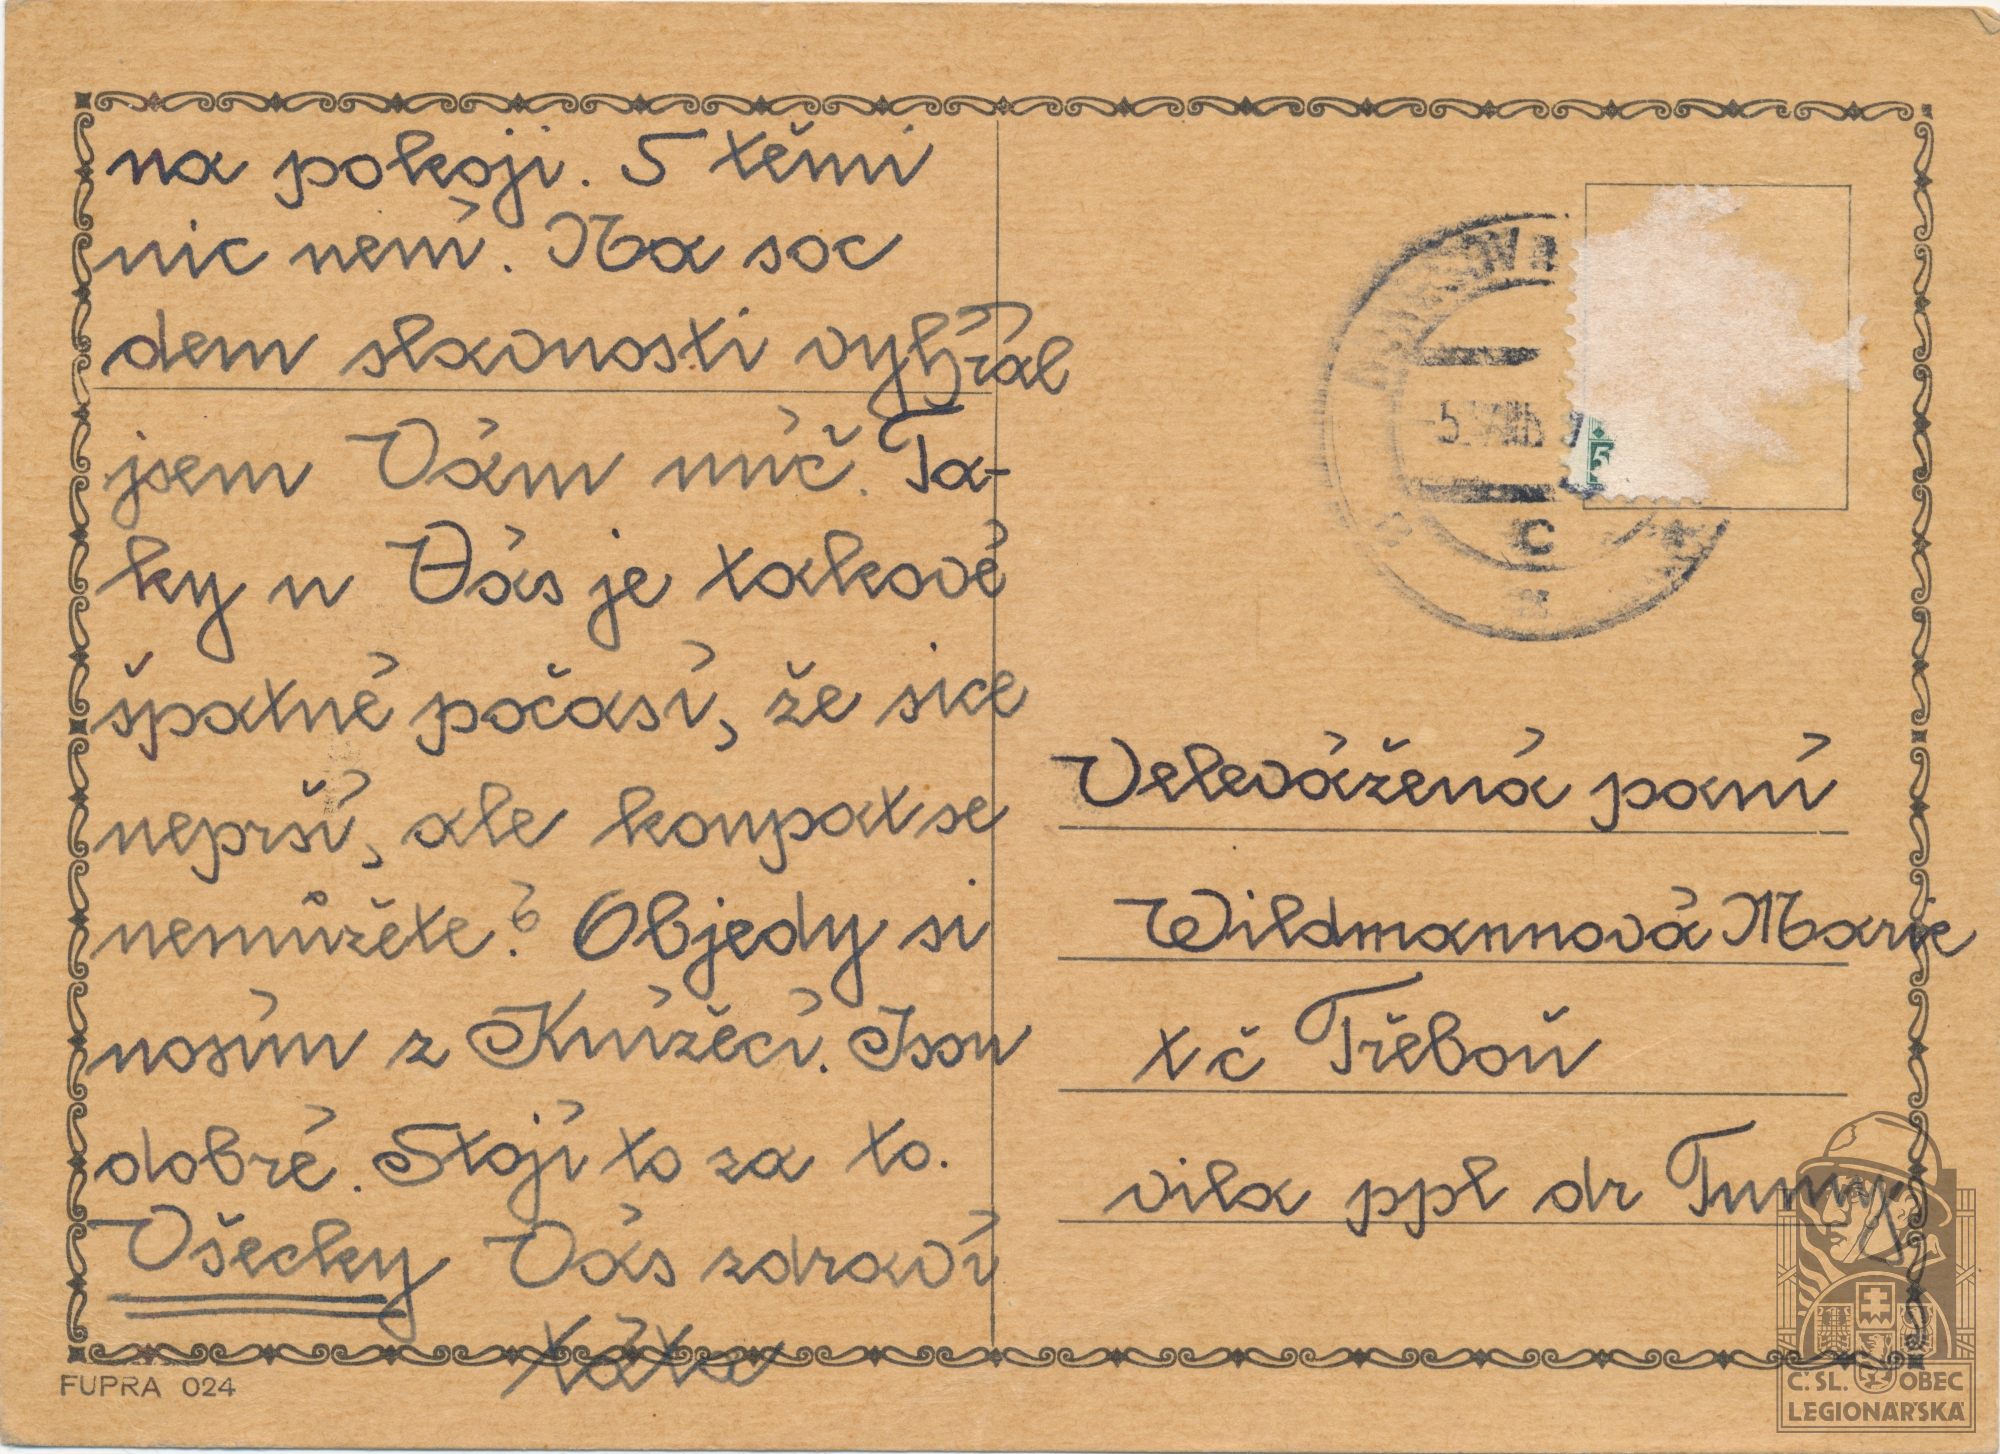 na pokoji. S těmi
nic není. Na soc
dem slavnosti vyhrál
jsem Vám míč. Ta-
ky u Vás je takové
špatné počasí, že sice
neprší, ale koupat se
nemůžete? Objedy si
nosím z Knížecí. Jsou
dobré. Stojí to za to.
Všecky Vás zdraví
táta
FUPRA 024
5
C
Velevážená paní
Wildmannová Marie
t č Třeboň
vila ppl dr Tumy
Č. SL. OBEC
LEGIONÁŘSKÁ